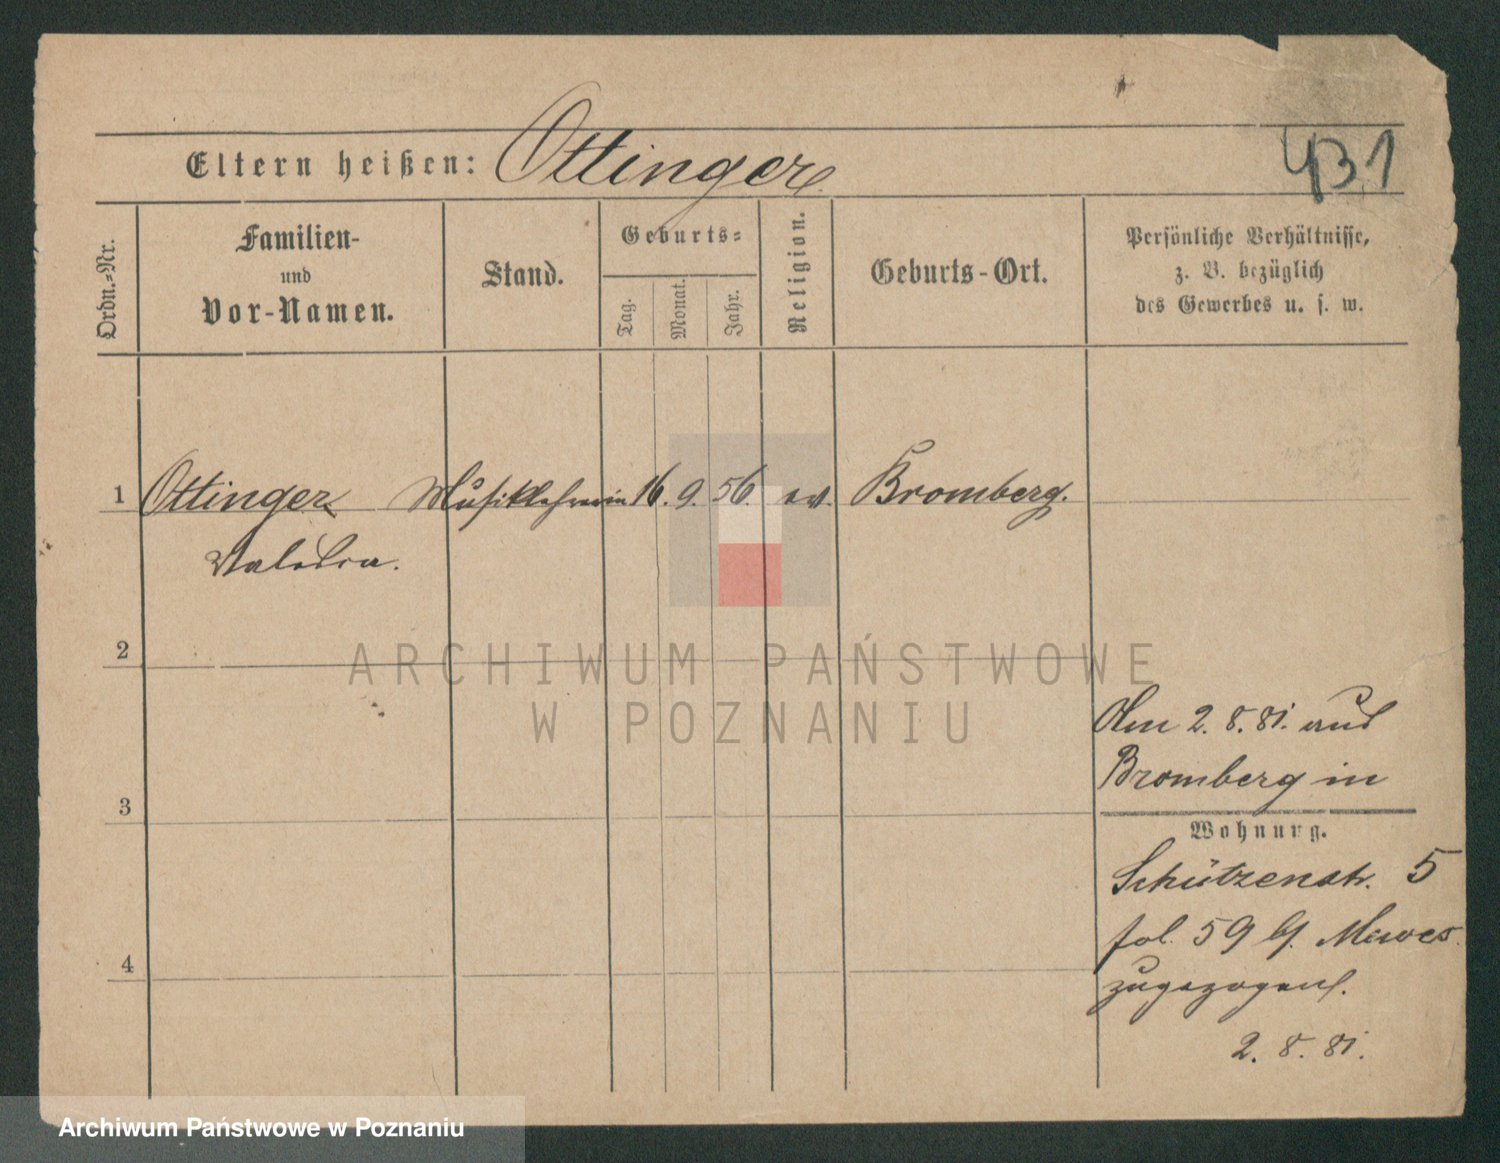 431
Eltern heißen: Ottinger
Ordn.-Nr.
Familien-
und
Vor-Namen.
Stand.
Geburts-
Tag.
Monat.
Jahr.
Religion.
Geburts-Ort.
Persönliche Verhältnisse,
z. B. bezüglich
des Gewerbes u. s. w.
1 Ottinger Musiklehrerin 16. 9. 56. ev. Bromberg.
Valeska.
2
ARCHIWUM PAŃSTWOWE
W POZNANIU
Am 2. 8. 81. aus
Bromberg in
3
Wohnung.
Schützenstr. 5
fol. 59 b. Mewes
4
zugezogen.
2. 8. 81.
Archiwum Państwowe w Poznaniu